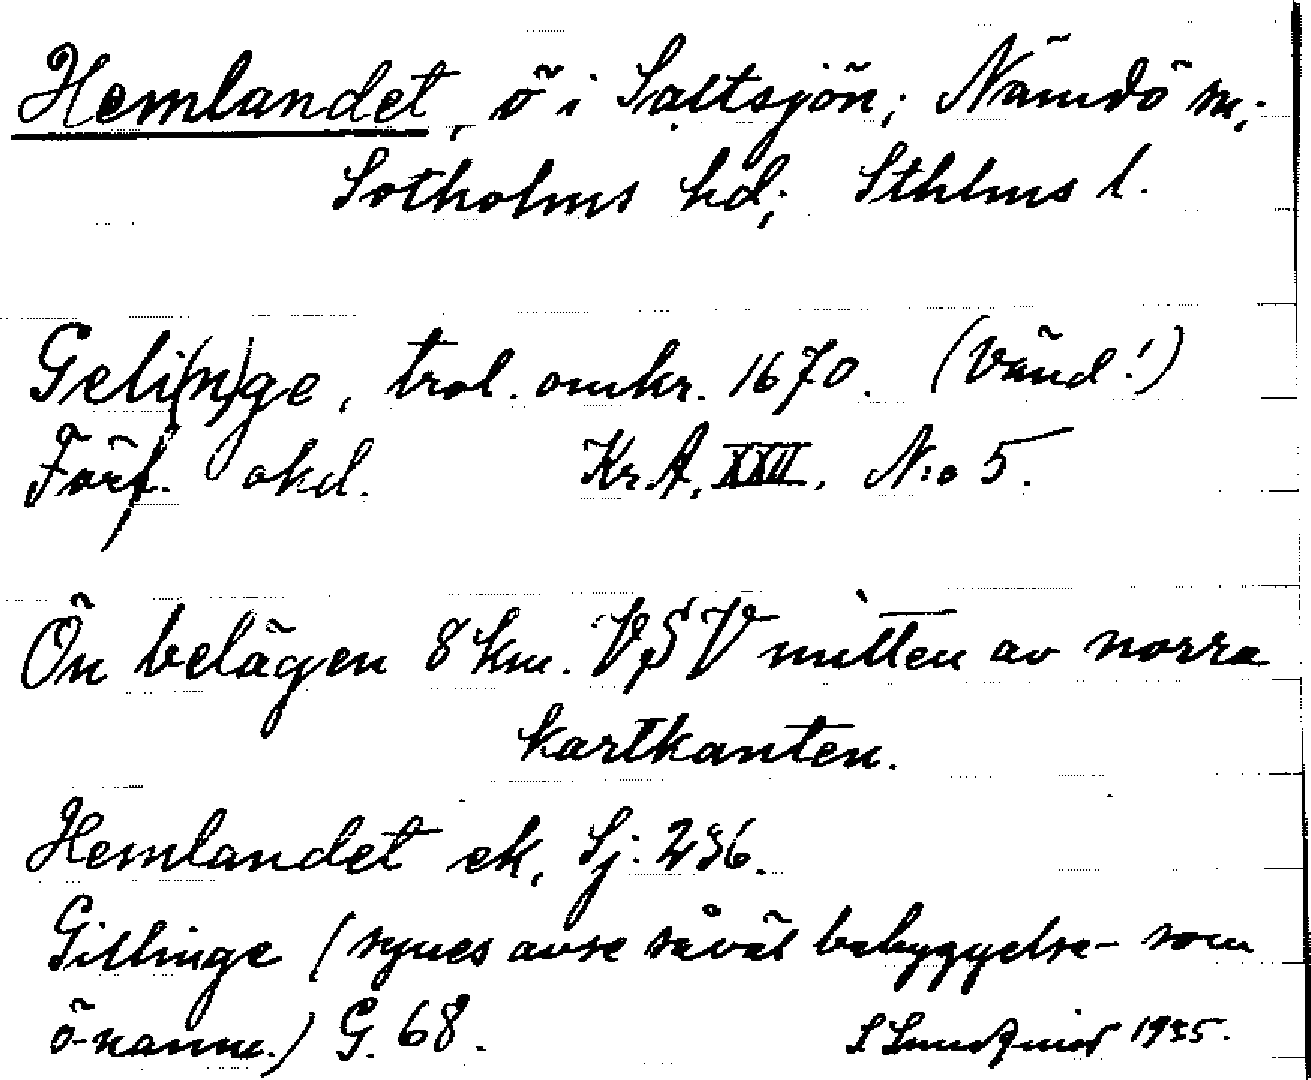 Hemlandet, ö i Saltsjön; Nämdö sn;
Sotholms hd; Sthlms l.
Geli(n)ge, trol. omkr. 1670. (Vänd!)
Förf. okd. Kr.A. XXII. N:o 5.
Ön belägen 8 km. VSV mitten av norra
kartkanten.
Hemlandet ek. Sj: 236.
Gillinge (synes avse såväl bebyggelse- som
ö-namn.) G. 68.
S Lundqvist 1935.